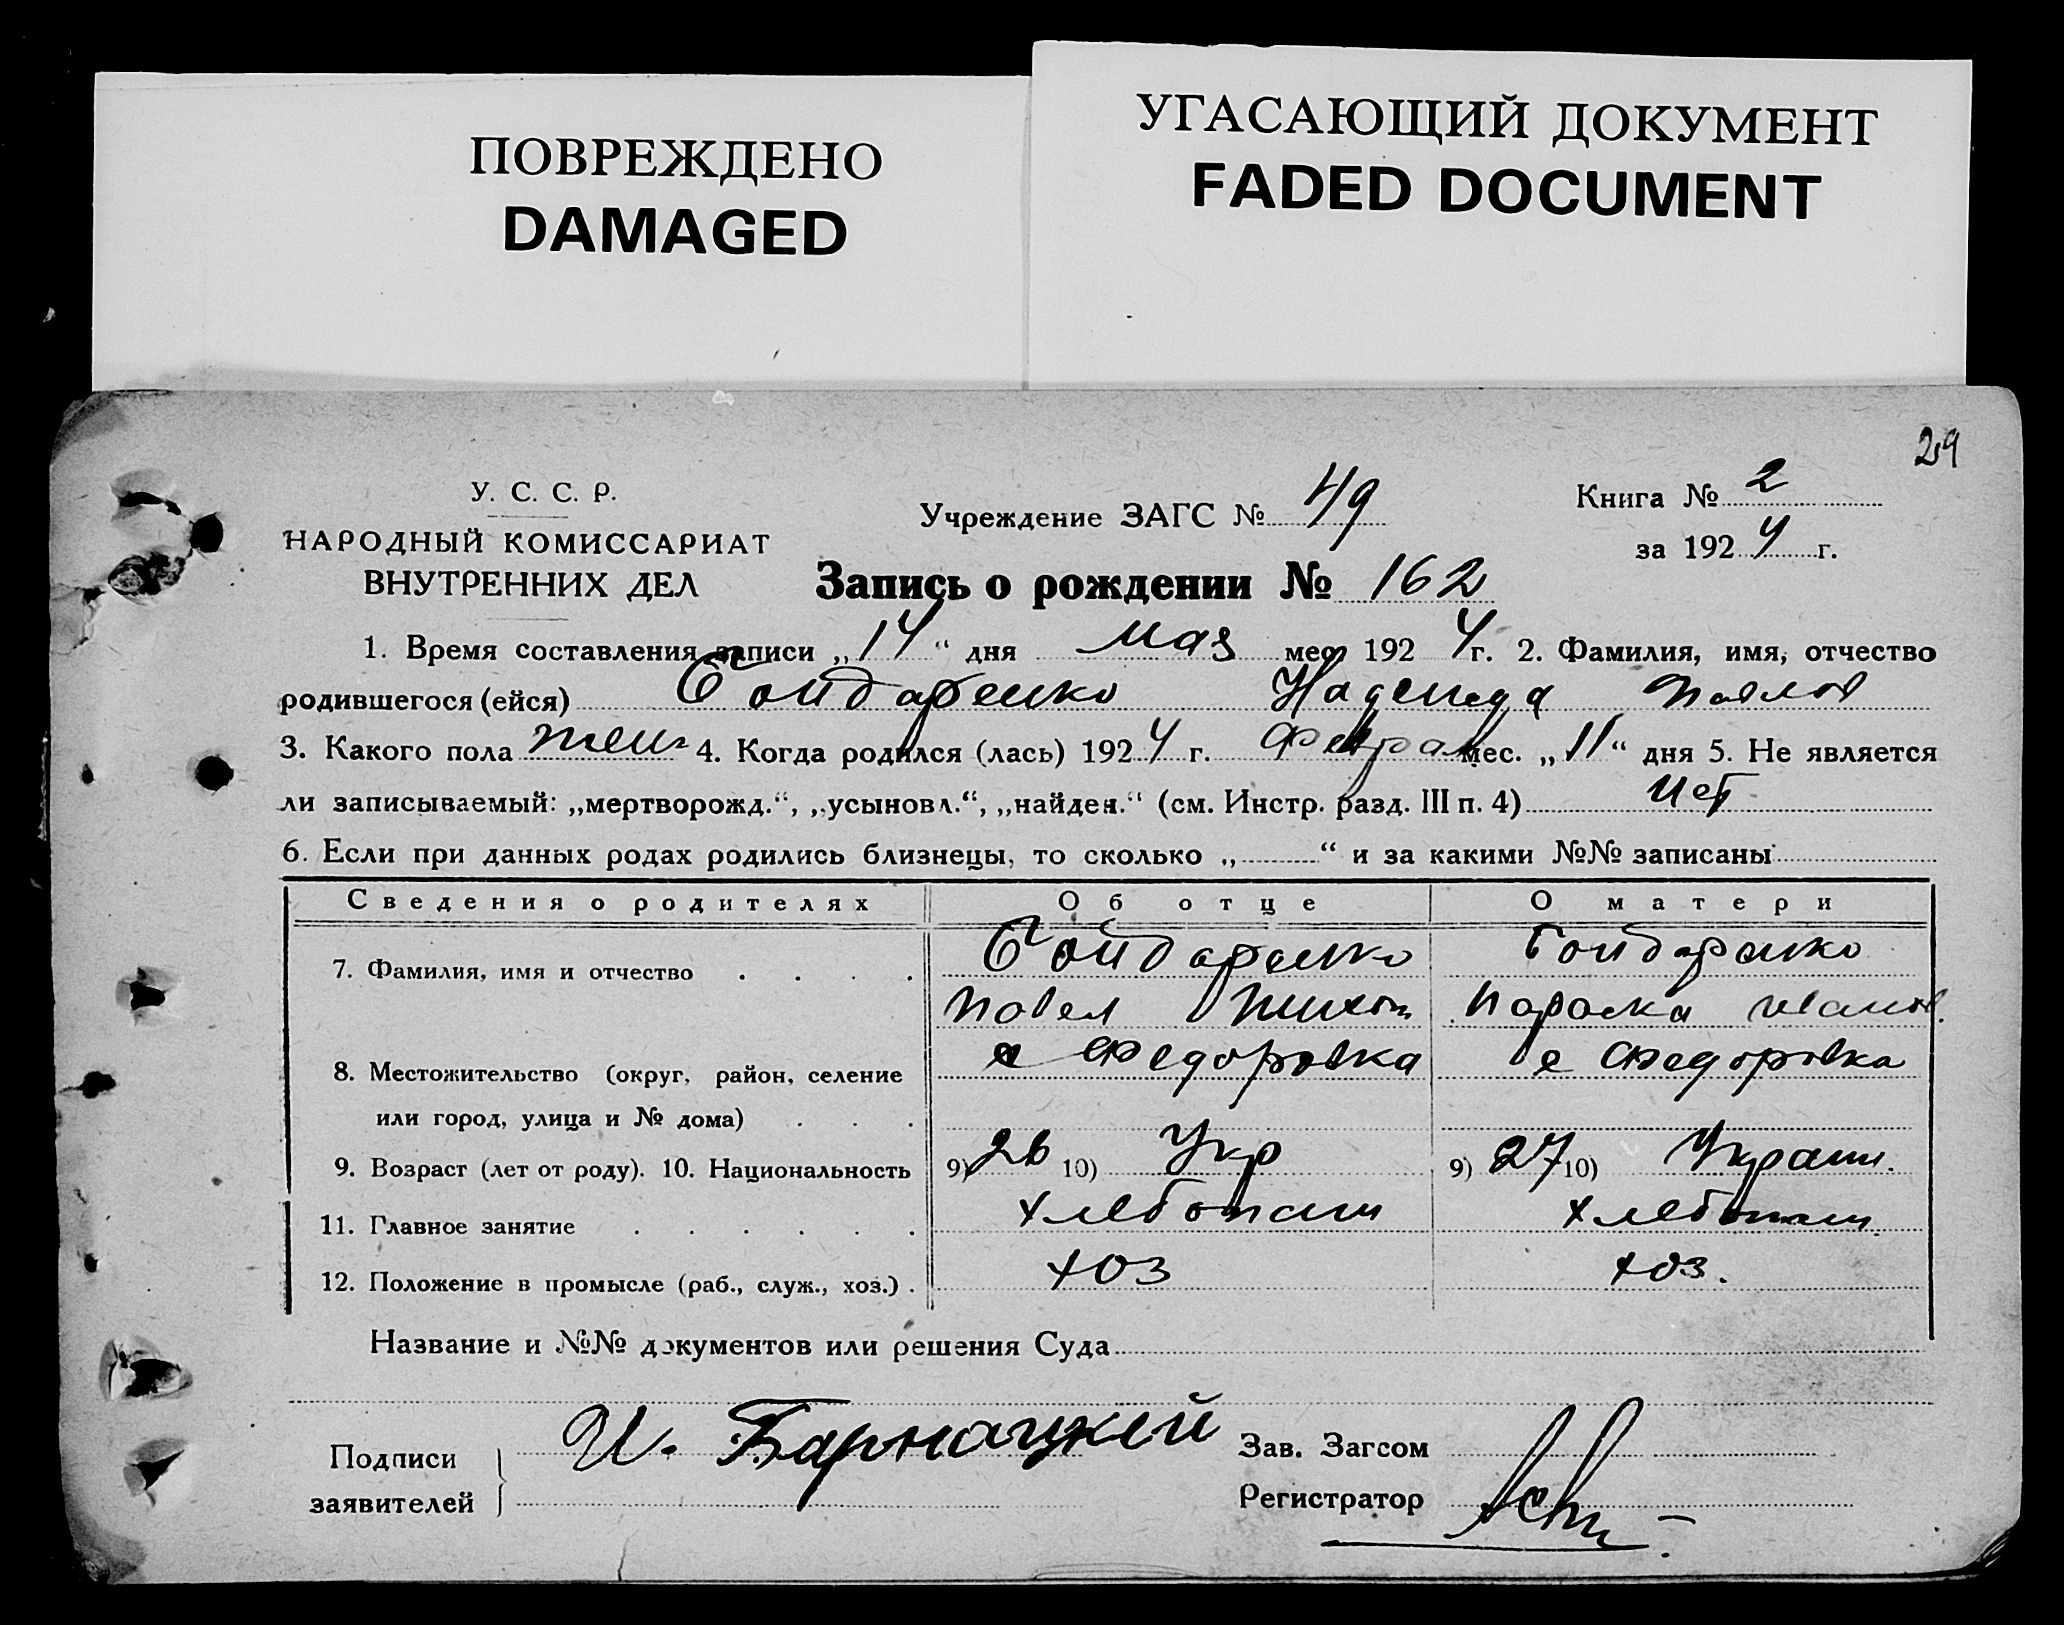 ПОВРЕЖДЕНО
DAMAGED
УГАСАЮЩИЙ ДОКУМЕНТ
FADED DOCUMENT
29
У. С. С. Р.
НАРОДНЫЙ КОМИССАРИАТ
ВНУТРЕННИХ ДЕЛ
Учреждение ЗАГС № 49
Книга № 2
за 1924 г.
Запись о рождении № 162
1. Время составления записи „14“ дня мая мес. 1924 г. 2. Фамилия, имя, отчество
родившегося (ейся) Бондаренко Надежда Павлов
3. Какого пола жен 4. Когда родился (лась) 1924 г. Феврал мес. „11“ дня 5. Не является
ли записываемый: „мертворожд.“, „усыновл.“, „найден.“ (см. Инстр. разд. III п. 4) нет
6. Если при данных родах родились близнецы, то сколько „ “ и за какими №№ записаны
Сведения о родителях Об отце О матери
7. Фамилия, имя и отчество Бондаренко Бондаренко
Павел Параска Иванов.
8. Местожительство (округ, район, селение с Федоровка с Федоровка
или город, улица и № дома)
9. Возраст (лет от роду). 10. Национальность 9) 26 10) Укр 9) 27 10) Украин.
11. Главное занятие хлебопаш хлебопаш.
12. Положение в промысле (раб., служ., хоз.) хоз хоз.
Название и №№ документов или решения Суда
Подписи И. Барнацкий Зав. Загсом
заявителей Регистратор